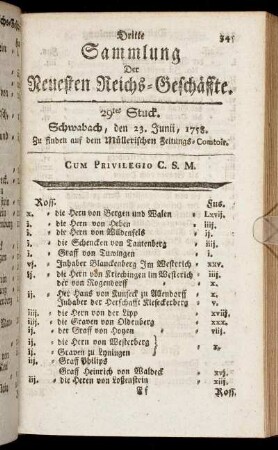 Dritte 341
Sammlung
Der
Neuesten Reichs-Geschäffte.
29tes Stuck.
Schwabach, den 23. Junii, 1758.
Zu finden auf dem Müllerischen Zeitungs-Comtoir.
CUM PRIVILEGIO C. S. M.
Ross. Fus.
x. die Hern von Bergen und Walen Lxvij.
i. die Hern von Oeben iiij.
i. die Hern von Wildenfels ij.
i. die Schencken von Tautenberg iiij.
i. Graff von Tuvingen i.
vj. Inhaber Blanckenberg Im Westerich xxv.
ij. die Hern von Kriechingen im Westerich iiij.
der von Rogendorff x.
ij. Her Hans von Kunseck zu Allendorff x.
Inhaber der Herschafft Kieseckerberg v.
iiij. die Hern von der Lipp xviij.
iiij. die Graven von Oldenberg xxx.
ij. der Graff von Hoyen viij.
ij. die Hern von Westerberg
ij. Graven zu Lyningen
iij. Graff Philips
Graff Heinrich von Waldeck xvj.
iij. die Heren von Loßenstein xiij.
Ff Ross.